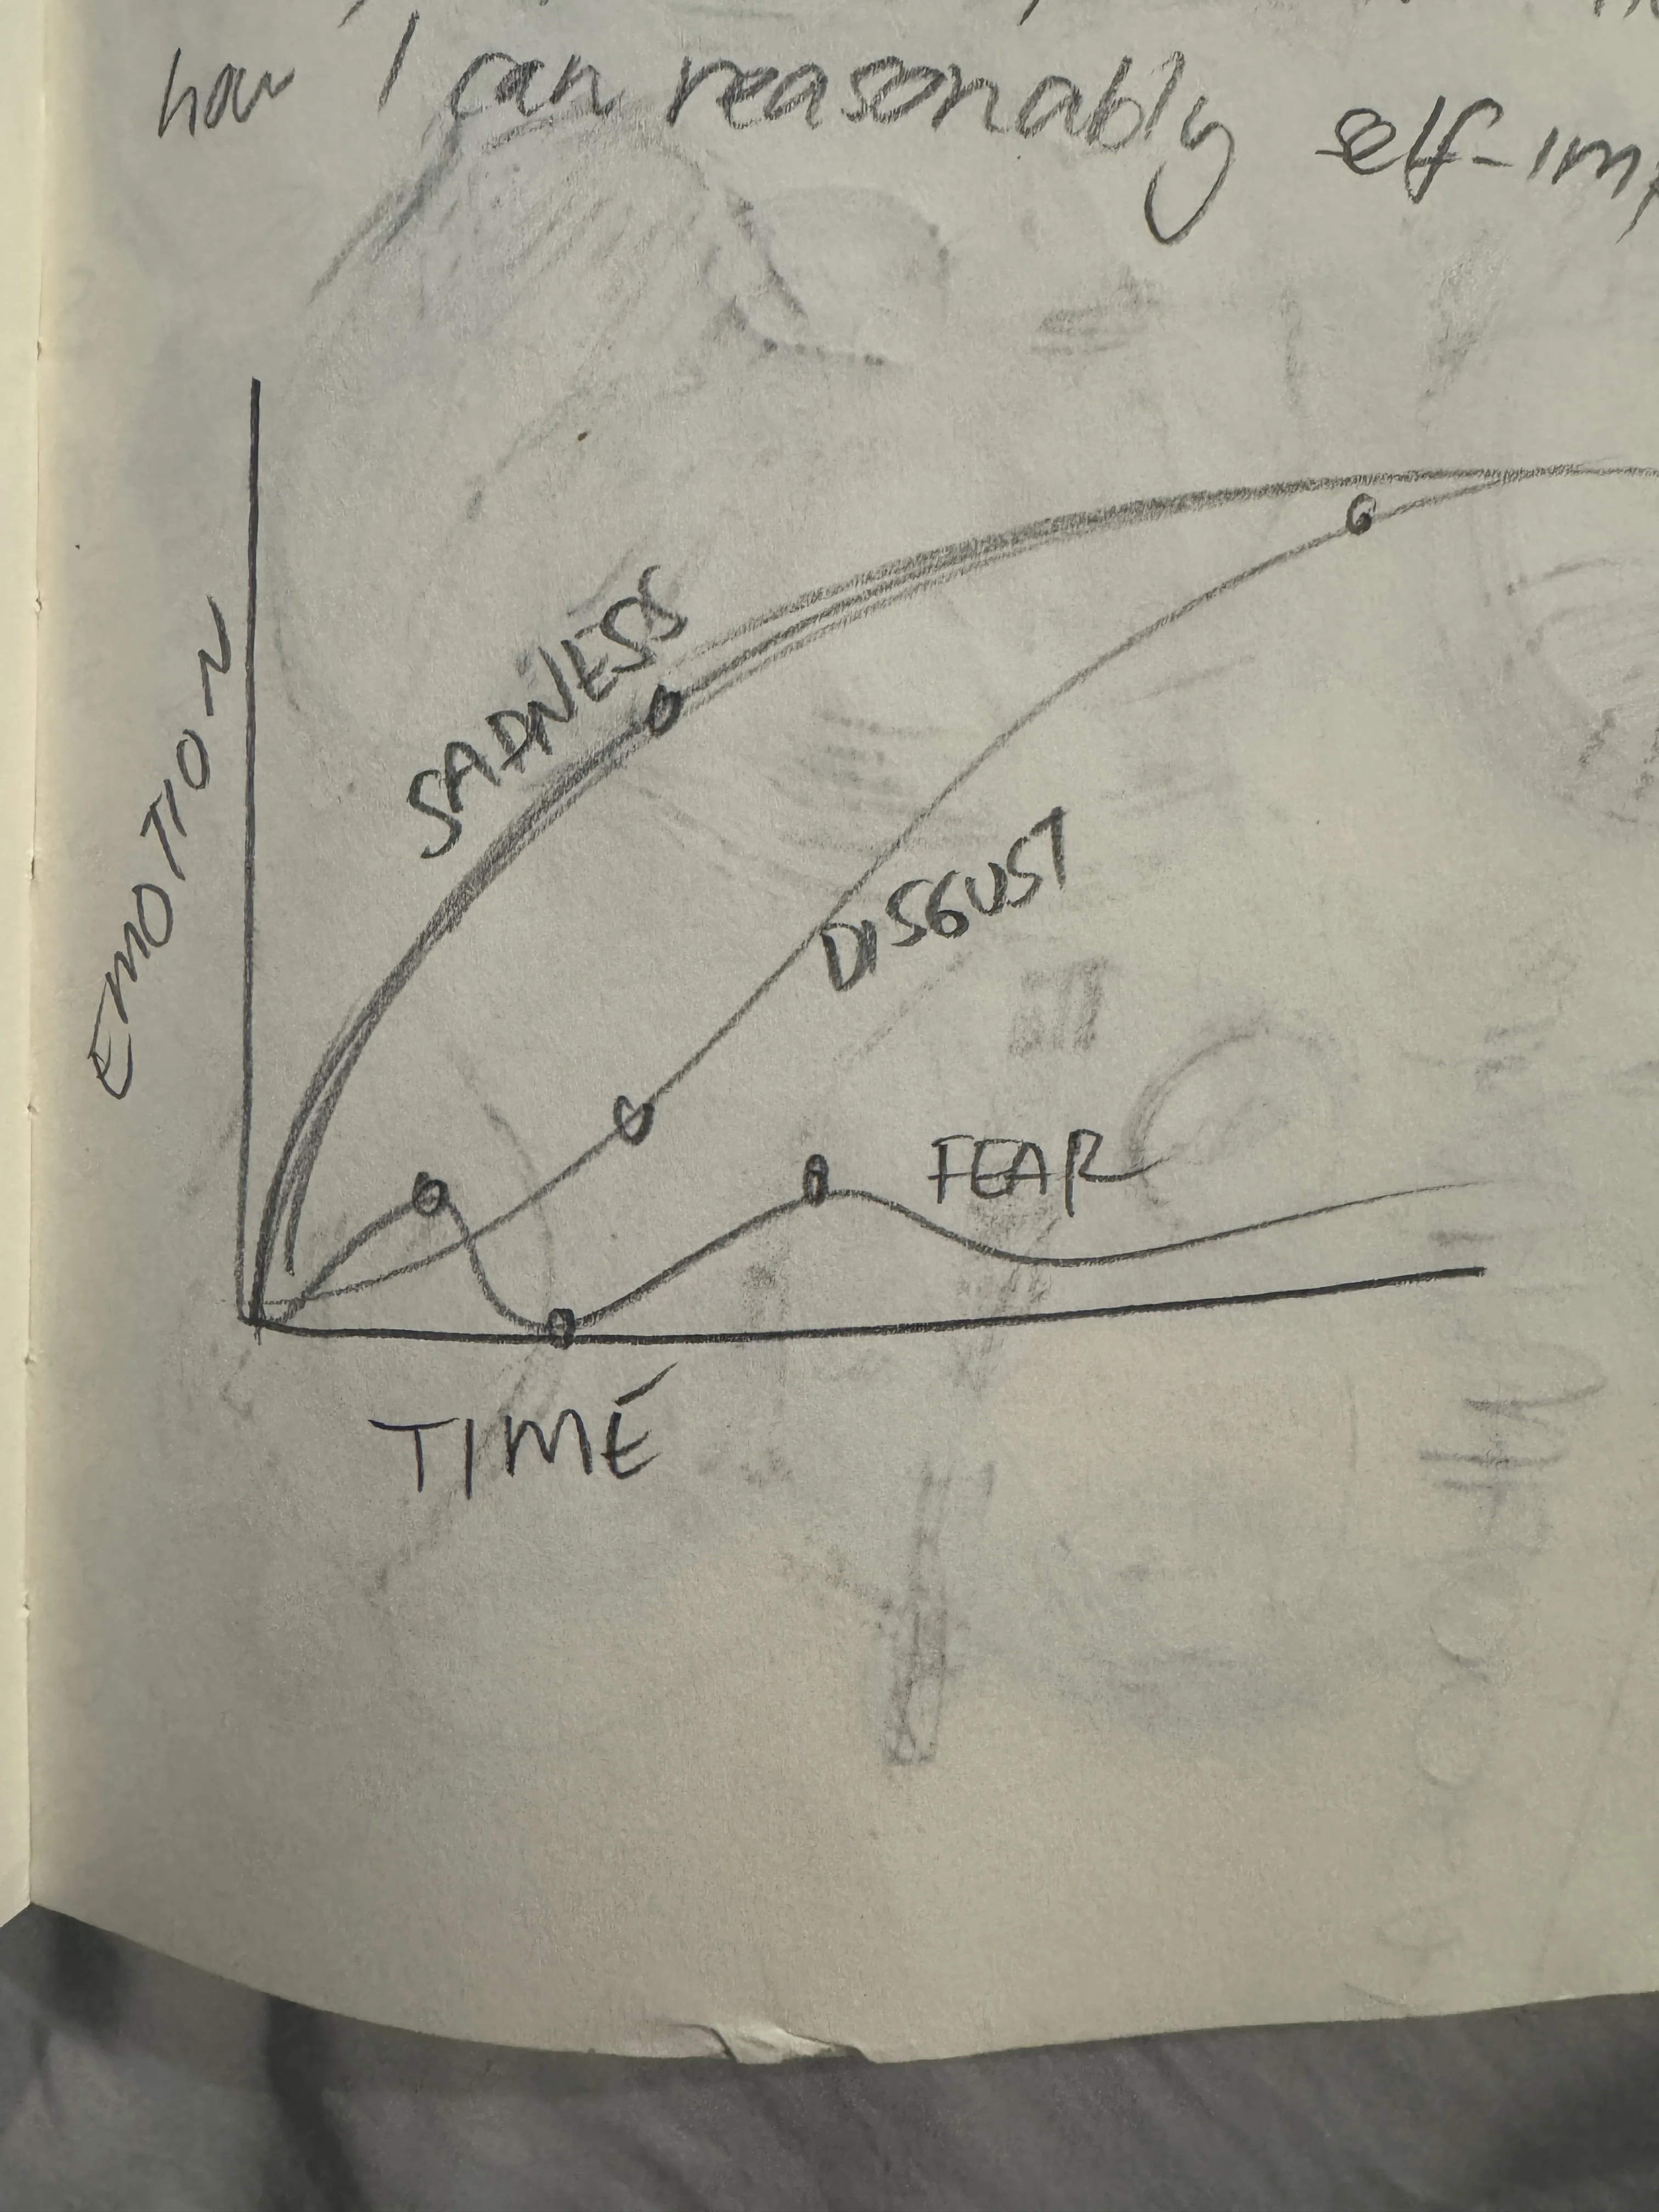 how I can reasonably self-imp
EMOTION
SADNESS
DISGUST
FEAR
TIME